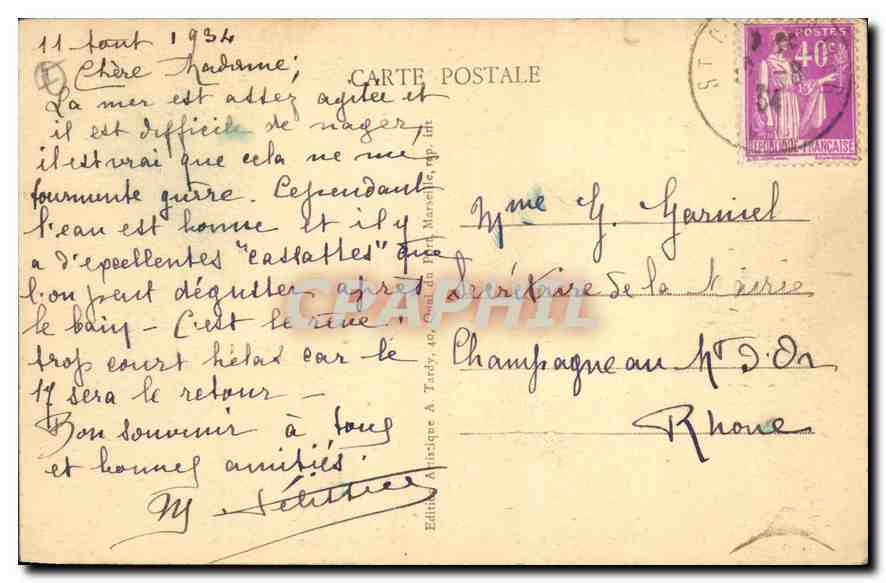 11 Aout 1934
Chère Madame,
La mer est assez agitée et
il est difficile de nager,
il est vrai que cela ne me
tourmente guerre. Cependant
l'eau est bonne et il y
a d'excellentes "cassattes" que
l'on peut déguster après
le bain - C'est le rêve,
trop court hélas car le
17 sera le retour -
Bon souvenir à tous
et bonnes amitiés.
M
CARTE POSTALE
Edition Artistique A. Tardy, 40, Quai du Port, Marseille, rep. int
POSTES
40c
REPUBLIQUE-FRANÇAISE
ST
34
Mme G. Garniel
Secrétaire de la Mairie
Champagne au Mt d'Or
Rhone
CPAPHIL